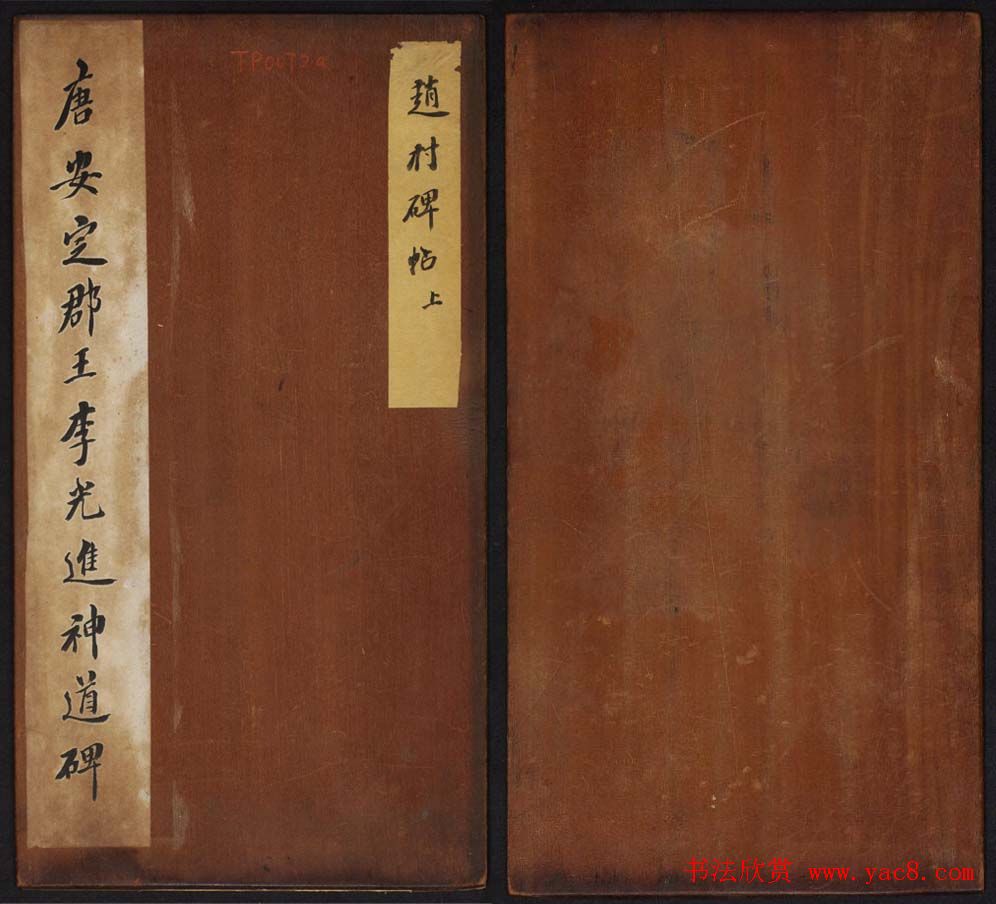 趙村碑帖上
TP0072a
唐安定郡王李光進神道碑
书法欣赏 www.yac8.com